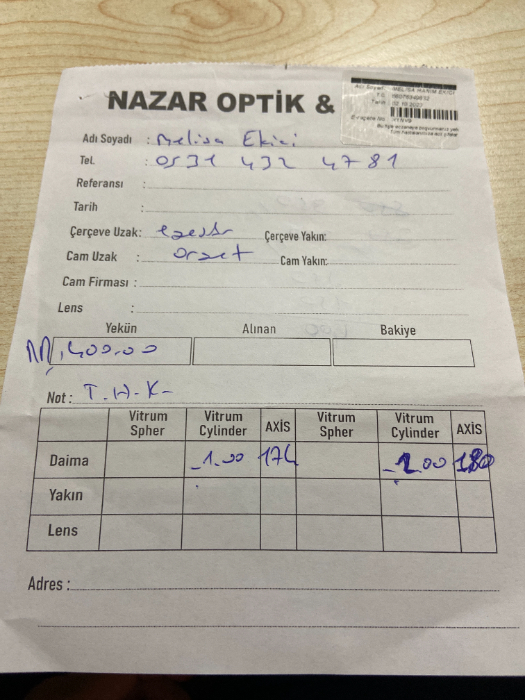 NAZAR OPTİK &
Adı Soyadı : Melisa Ekici
Tel. : 0531 432 4781
Referansı :
Tarih :
Çerçeve Uzak: Çerçeve Yakın:
Cam Uzak : Cam Yakın:
Cam Firması :
Lens :
Yekün Alınan Bakiye
,400.00
Not : T.H.K-
Vitrum Spher Vitrum Cylinder AXİS Vitrum Spher Vitrum Cylinder AXİS
Daima -1.00 174 -1.00 180
Yakın
Lens
Adres :